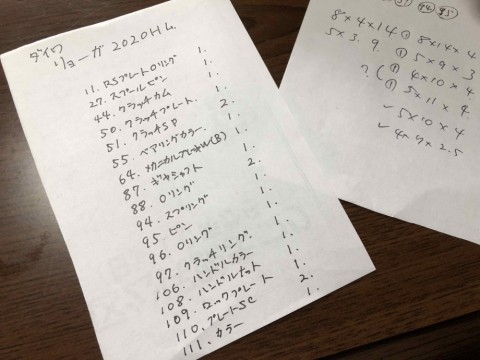 ダイワ
リョーガ 2020H L.
11. RSプレートOリング 1.
27. スプールピン 1.
44. クラッチカム 1.
50. クラッチプレート. 1.
51. クラッチSP 2.
55. ベアリングカラー. 1.
64. メカニカルブレーキ(B) 1.
87. ギヤシャフト 1.
88. Oリング 2.
94. スプリング 1.
95. ピン 1.
96. Oリング 1.
97. クラッチリング 1.
106. ハンドルカラー 1.
108. ハンドルナット 1.
109. ロックプレート 1.
110. プレートSC 2.
111. カラー 1.
94 95
8×4×14 ① 8×14×4
5×3. 9. ① 5×9×3
? ( ① 4×10×4
① 5×11×4
✓ 5×10×4
✓ 4×9×2.5